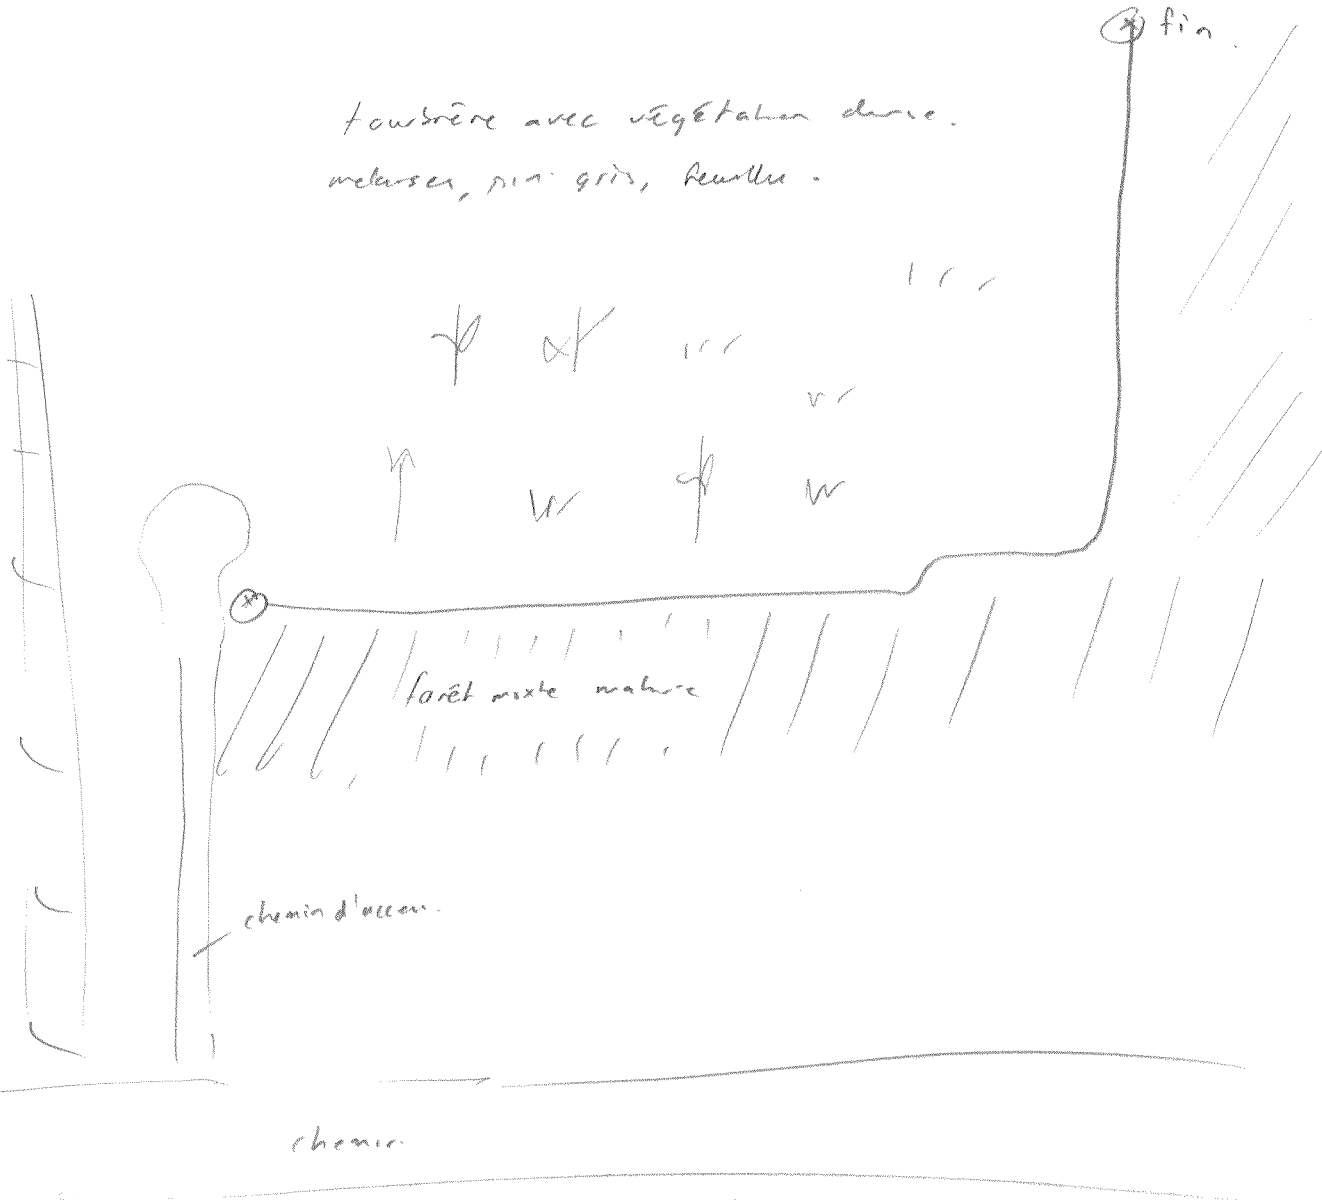 fin.
tourbière avec végétation dense.
mélèzes, pin gris, feuillu.
forêt mixte mature
chemin d'accès.
chemin.